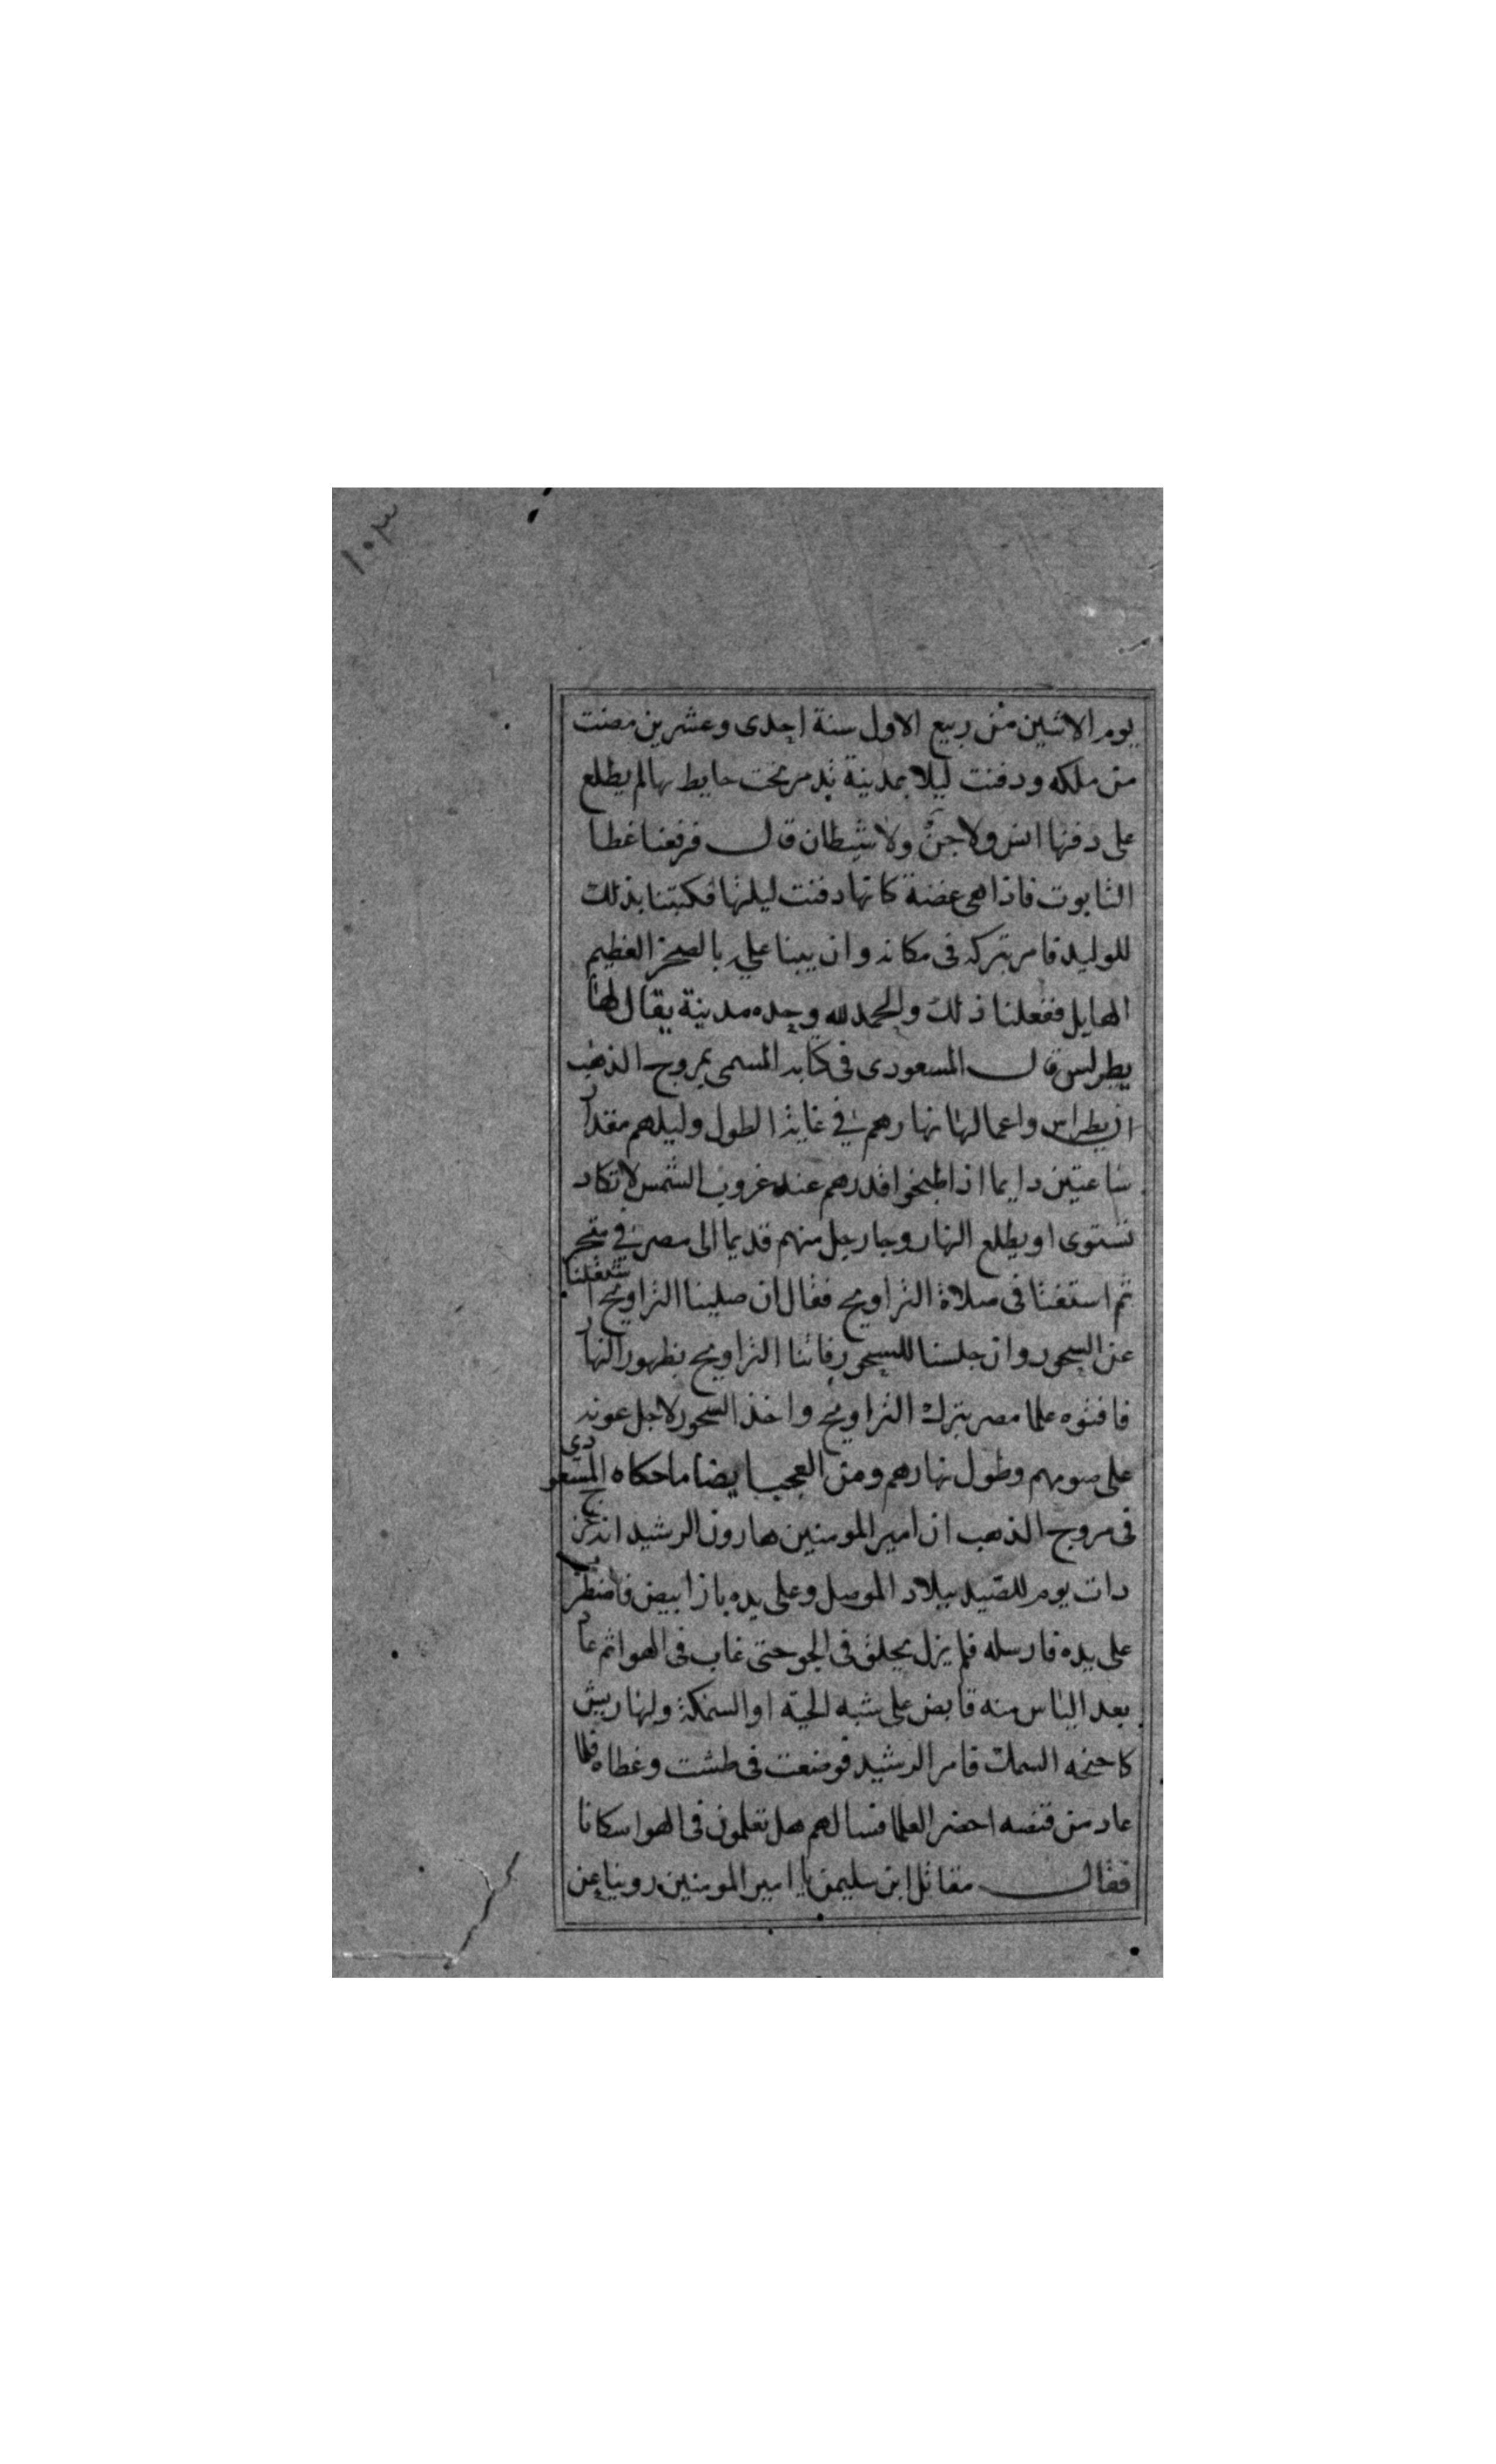 ١٠٣
يوم الاثنين من ربيع الاول سنة احدى وعشرين مضت
من ملكه ودفنت ليلا بمدينة تدمر تحت حايط بها لم يطلع
على دفنها انس ولا جن ولا شيطان قال فرفعنا غطا
التابوت فاذا هى غضة كانها دفنت ليلتها فكتبنا بذلك
للوليد فامر بتركه فى مكانه وان يبنا عليه بالصخر العظيم
الهايل ففعلنا ذلك والحمد لله وحده مدينة يقال لها
يطرلس قال المسعودى فى كتابه المسمى بمروج الذهب
ان يطراس واعمالها نهارهم في غاية الطول وليلهم مقدار
ساعتين دايما اذا طبخوا قدرهم عند غروب الشمس لا تكاد
تستوى او يطلع النهار وجا رجل منهم قديما الى مصر في متجر
ثم استفتا فى صلاة التراويح فقال ان صلينا التراويح اشغلنا
عن السحور وان جلسنا للسحور فاتنا التراويح بظهور النهار
فافتوه علما مصر بترك التراويح واخذ السحور لاجل عونه
على صومهم وطول نهارهم ومن العجب ايضا ما حكاه المسعودى
فى مروج الذهب ان امير المومنين هارون الرشيد انه خرج
دات يوم للصيد ببلاد الموصل وعلى يده باز ابيض فاضطرب
على يده فارسله فلم يزل يحلق فى الجو حتى غاب فى الهوا ثم عاد
بعد الياس منه قابض على شبه الحية او السمكة ولها ريش
كاجنحه السمك فامر الرشيد فوضعت فى طشت وغطاه فلما
عاد من قنصه احضر العلما فسالهم هل تعلمون فى الهوا سكانا
فقال مقاتل ابن سليمن يا امير المومنين روينا عن